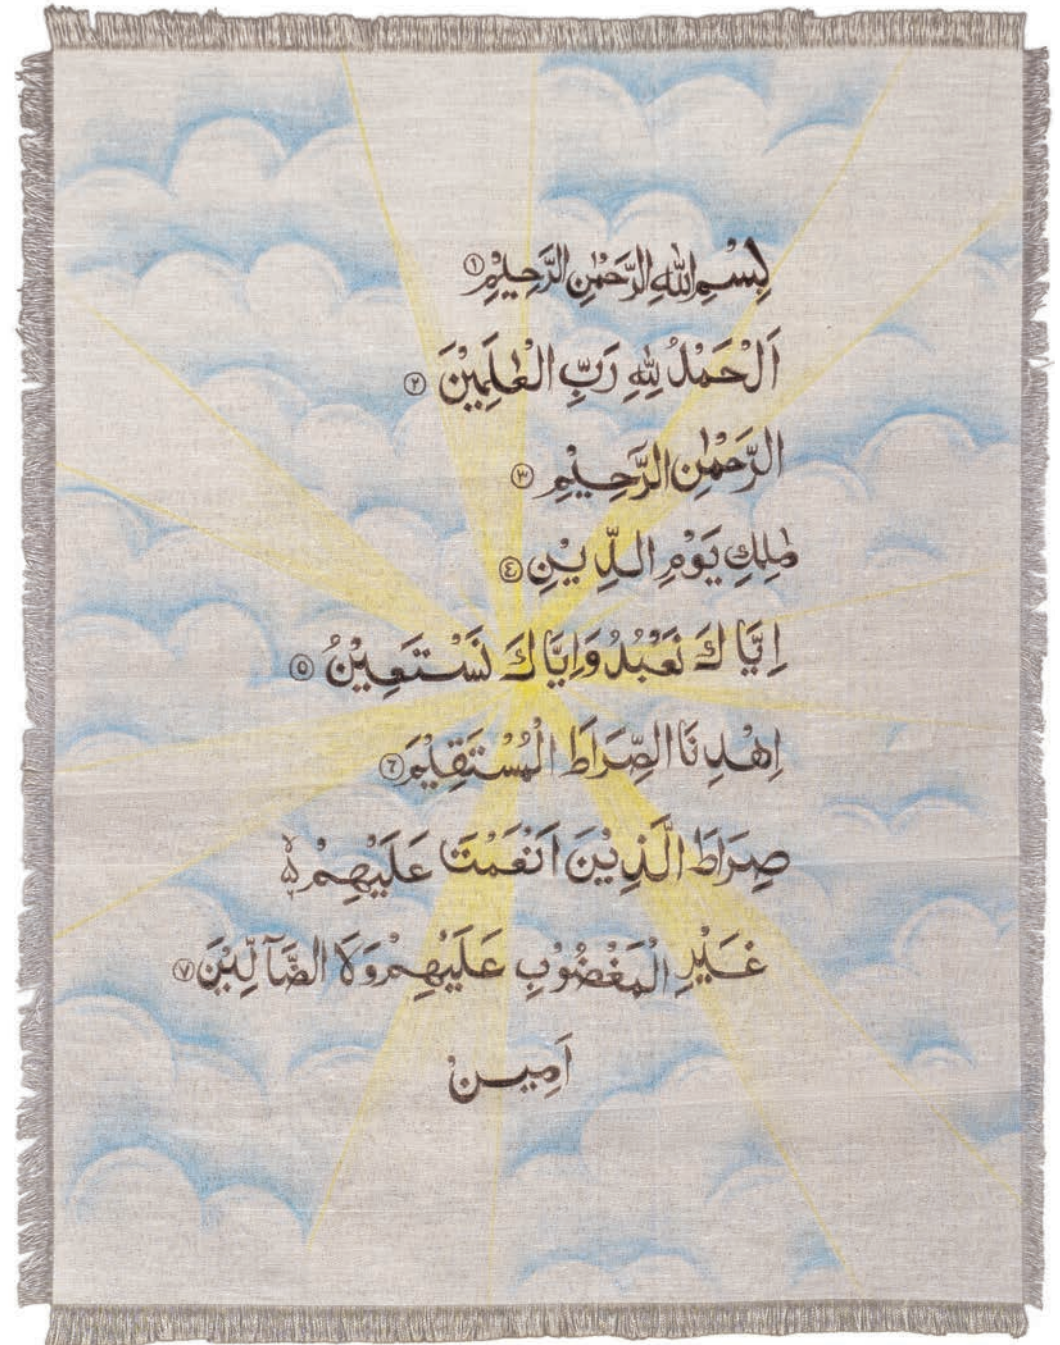 بِسْمِ اللّٰهِ الرَّحْمٰنِ الرَّحِيْمِ ①
اَلْحَمْدُ لِلّٰهِ رَبِّ الْعٰلَمِيْنَ ②
الرَّحْمٰنِ الرَّحِيْمِ ③
مٰلِكِ يَوْمِ الدِّيْنِ ④
اِيَّاكَ نَعْبُدُ وَاِيَّاكَ نَسْتَعِيْنُ ⑤
اِهْدِنَا الصِّرَاطَ الْمُسْتَقِيْمَ ⑥
صِرَاطَ الَّذِيْنَ اَنْعَمْتَ عَلَيْهِمْ ەۙ
غَيْرِ الْمَغْضُوْبِ عَلَيْهِمْ وَلَا الضَّآلِّيْنَ ⑦
اَمِيـنْ